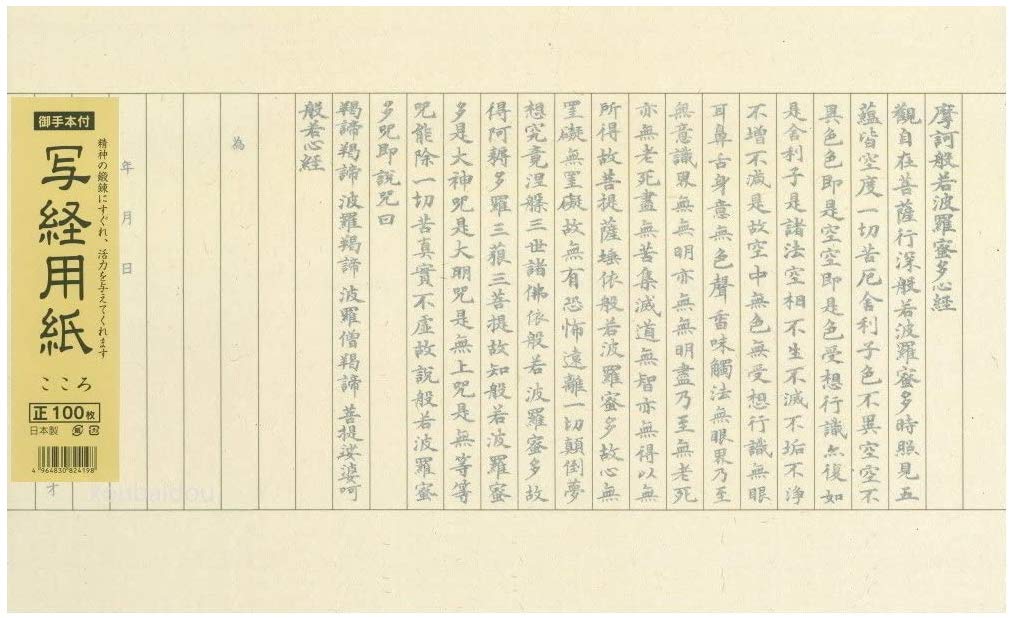 摩訶般若波羅蜜多心経
觀自在菩薩行深般若波羅蜜多時照見五
蘊皆空度一切苦厄舍利子色不異空空不
異色色即是空空即是色受想行識亦復如
是舍利子是諸法空相不生不滅不垢不淨
不增不減是故空中無色無受想行識無眼
耳鼻舌身意無色聲香味觸法無眼界乃至
無意識界無無明亦無無明盡乃至無老死
亦無老死盡無苦集滅道無智亦無得以無
所得故菩提薩埵依般若波羅蜜多故心無
罣礙無罣礙故無有恐怖遠離一切顛倒夢
想究竟涅槃三世諸佛依般若波羅蜜多故
得阿耨多羅三藐三菩提故知般若波羅蜜
多是大神咒是大明咒是無上咒是無等等
咒能除一切苦真實不虛故說般若波羅蜜
多咒即說咒曰
羯諦羯諦 波羅羯諦 波羅僧羯諦 菩提娑婆呵
般若心経
為
年 月 日
御手本付
精神の鍛錬にすぐれ、活力を与えてくれます
写経用紙
こころ
正100枚
日本製
4 964830 824198
koubaidou